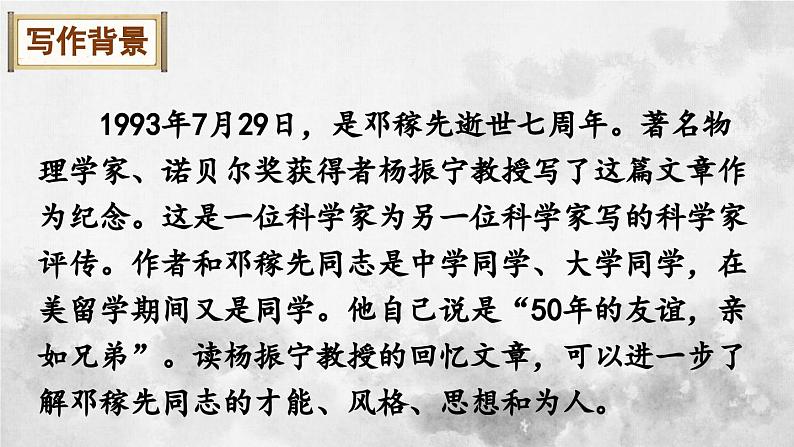 写作背景
1993年7月29日，是邓稼先逝世七周年。著名物
理学家、诺贝尔奖获得者杨振宁教授写了这篇文章作
为纪念。这是一位科学家为另一位科学家写的科学家
评传。作者和邓稼先同志是中学同学、大学同学，在
美留学期间又是同学。他自己说是“50年的友谊，亲
如兄弟”。读杨振宁教授的回忆文章，可以进一步了
解邓稼先同志的才能、风格、思想和为人。